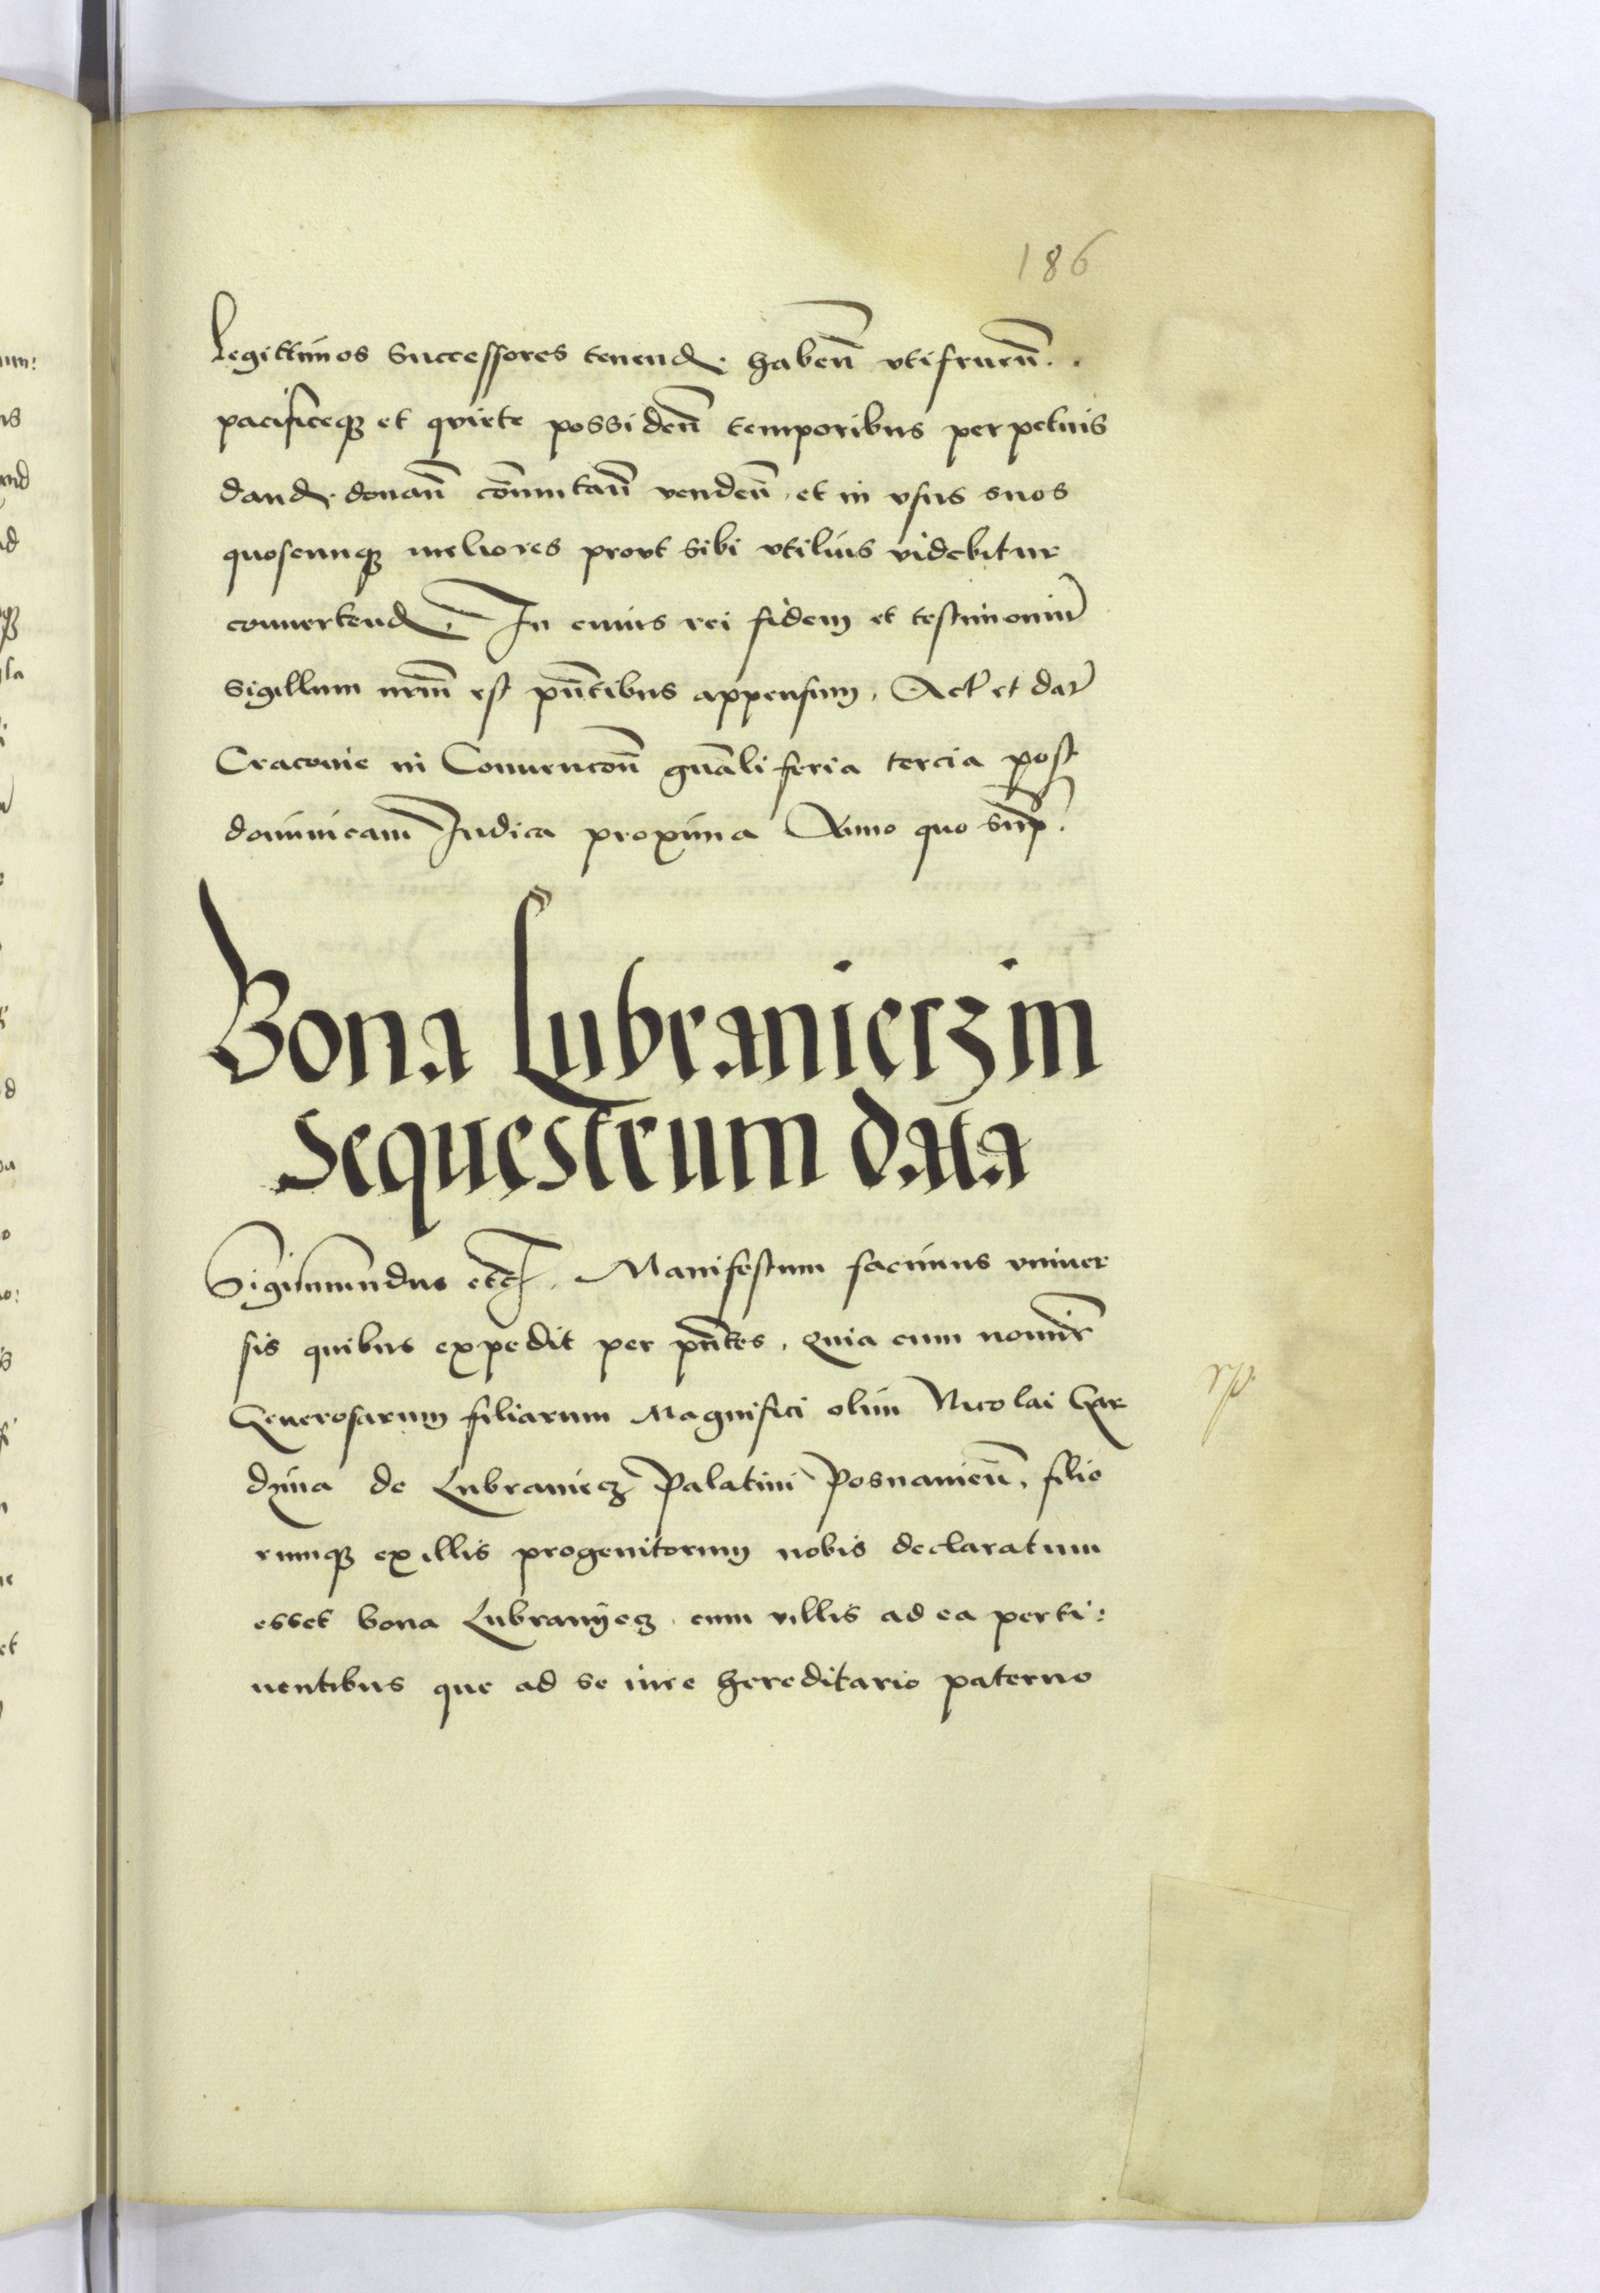 186
legittimos Successores tenend. habeñ vtifrueñ..
pacificeqꝫ et qviete possideñ temporibus perpetuis
dand. donañ cōmutañ vendeñ. et in vsus suos
quoscunqꝫ meliores prout sibi vtilius videbitur
conuertend. In cuius rei fidem et testimoniū
Sigillum nrm̄ est pn̄tibus appensum. Act̄ et dat̄
Cracouie in Conuencōn gn̄ali feria tercia post
dominicam Iudica proxima Anno quo sup̄.
Bona Lubranierz in
Sequestrum data
Sigismundus etc̄. Manifestum facimus vniuer
sis quibus expedit per pn̄tes. Quia cum nomīe
Generosarum filiarum Magnifici olim Nicolai Gar
dzina de Lubraniecz Palatini Posnanieñ. filio
rumqꝫ ex illis progenitorum nobis declaratum
esset bona Lubranÿecz. cum villis ad ea perti:
nentibus que ad se iure hereditario paterno